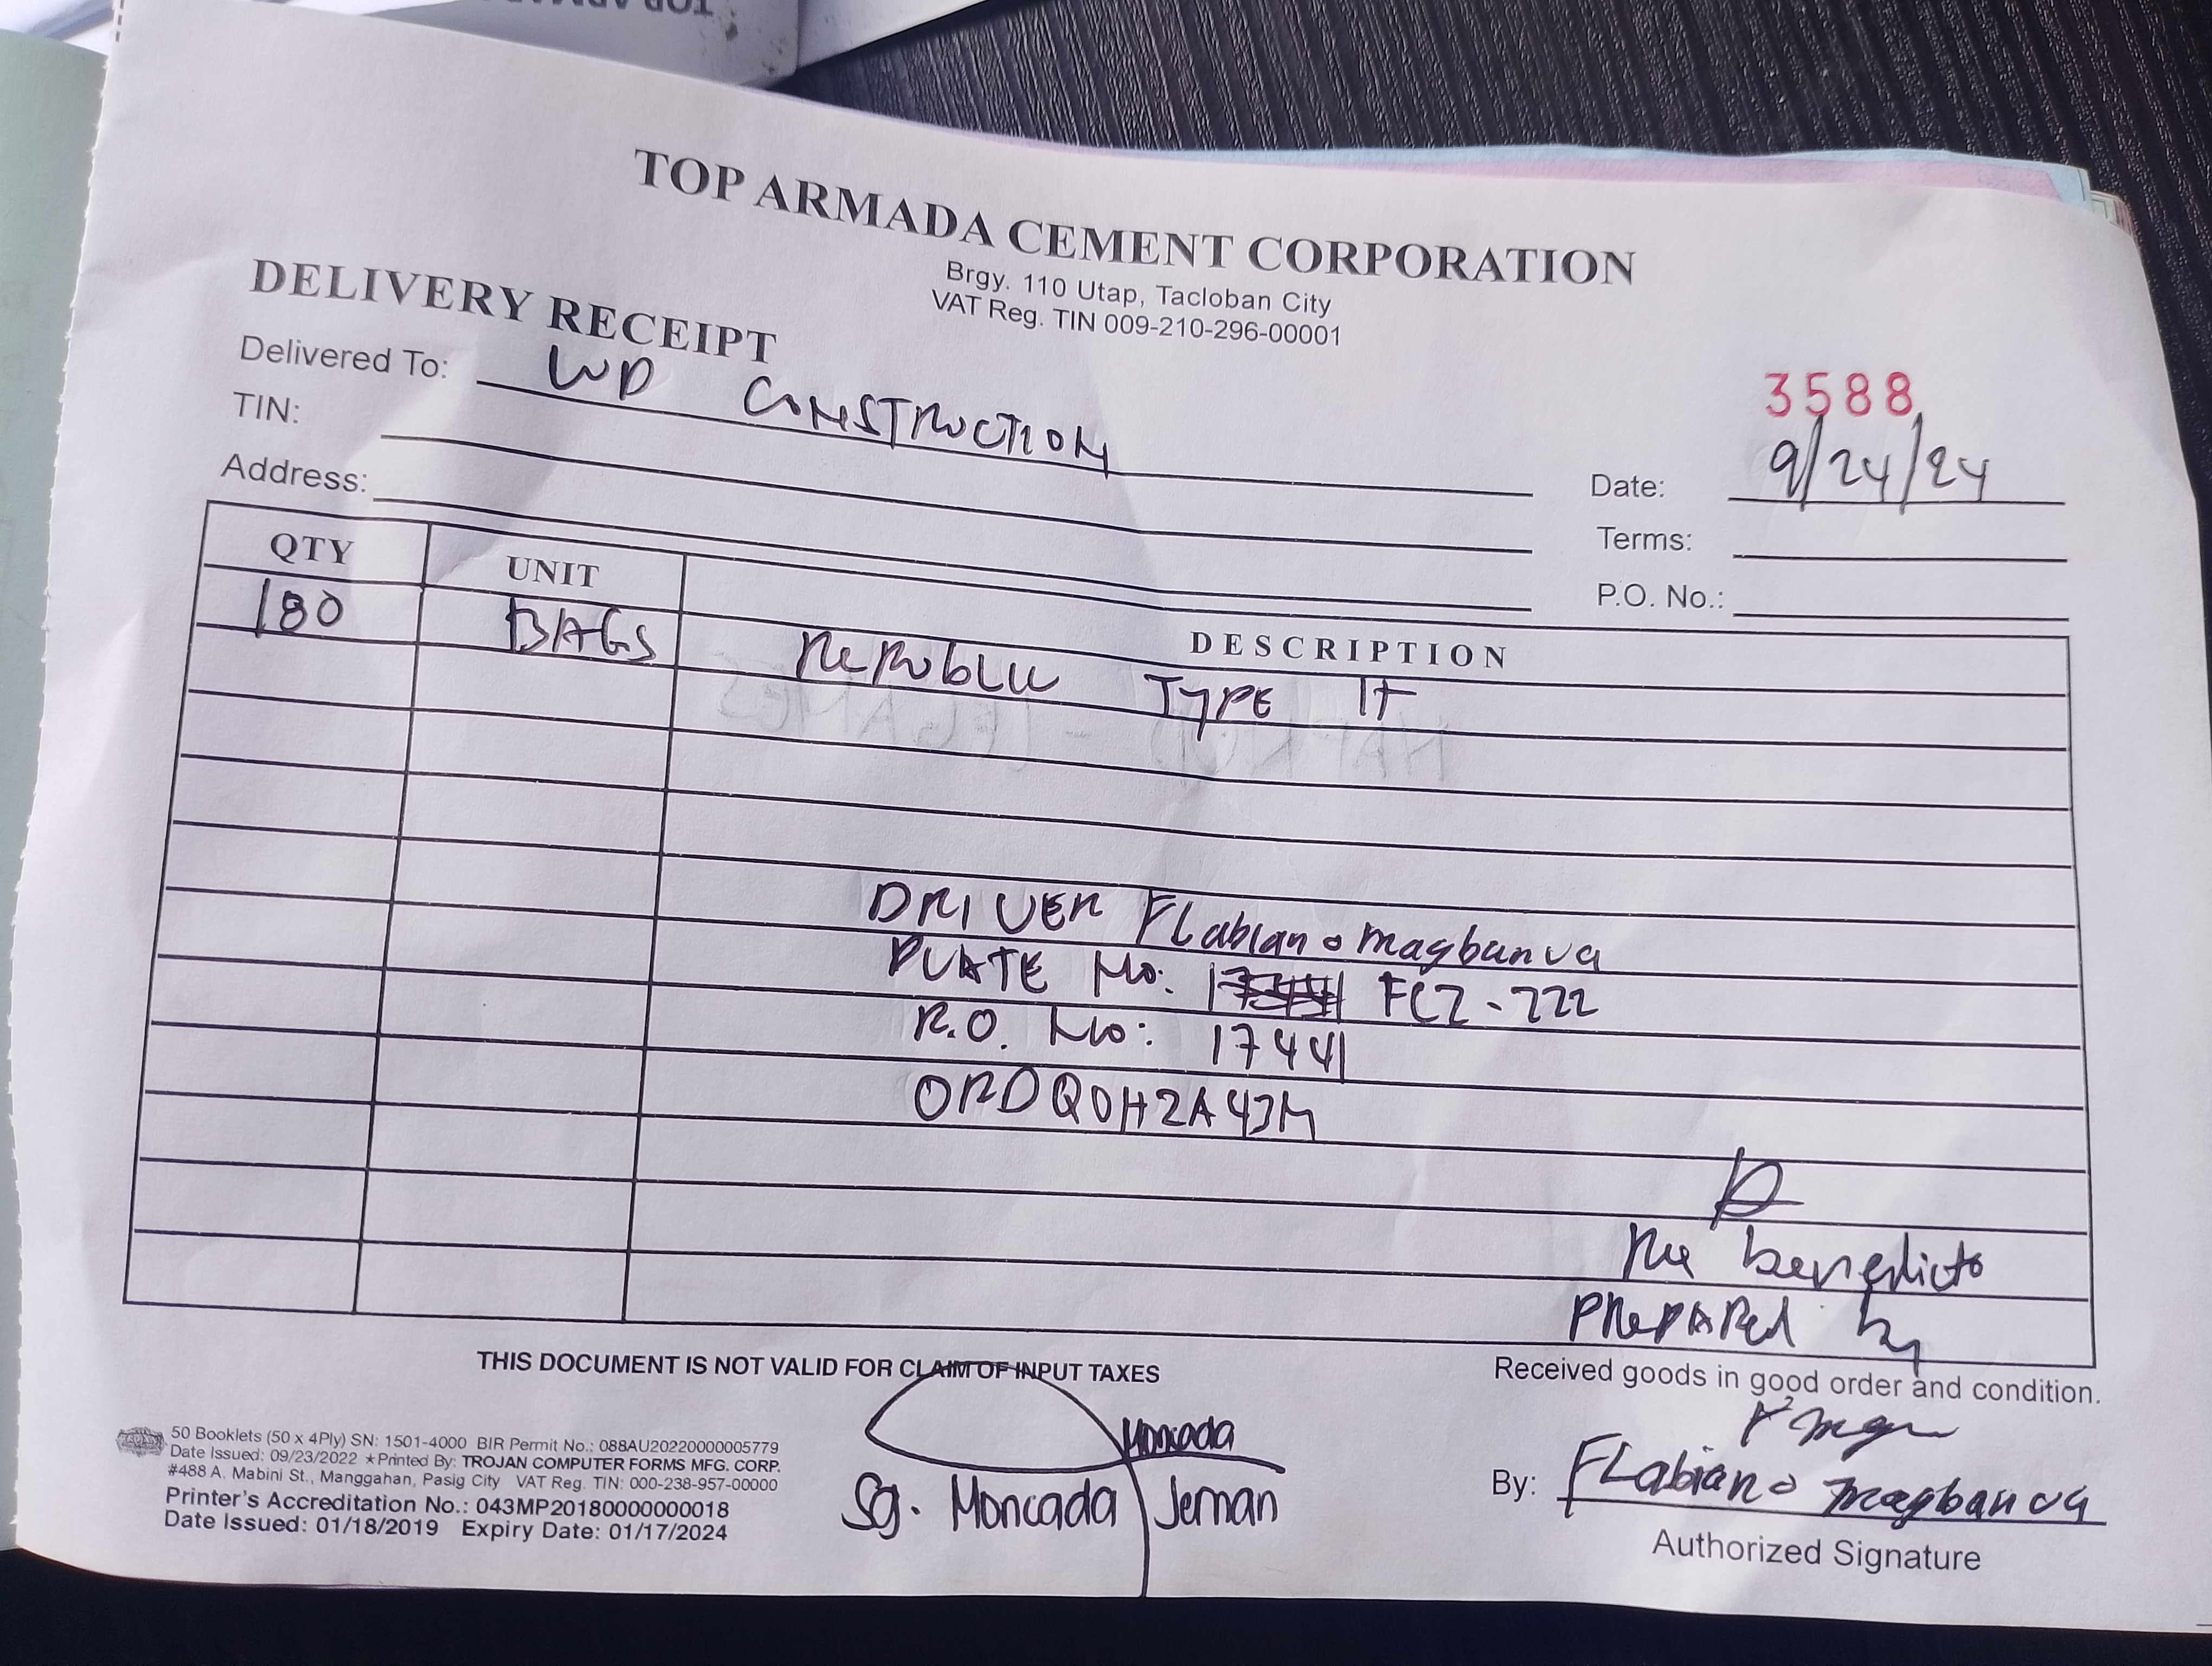 TOP ARMADA CEMENT CORPORATION
Brgy. 110 Utap, Tacloban City
VAT Reg. TIN 009-210-296-00001
DELIVERY RECEIPT
3588
Delivered To: WD CONSTRUCTION
Date: 9/24/24
TIN:
Terms:
Address:
P.O. No.:
QTY UNIT DESCRIPTION
180 BAGS REPUBLIC TYPE 1T
DRIVER FLabiano magbanua
PLATE No: FCZ-722
R.O. No: 17441
ORDQ0H2A43M
benedicto
PREPARED by
THIS DOCUMENT IS NOT VALID FOR CLAIM OF INPUT TAXES
Received goods in good order and condition.
50 Booklets (50 x 4Ply) SN: 1501-4000 BIR Permit No.: 088AU20220000005779
Date Issued: 09/23/2022 ★Printed By: TROJAN COMPUTER FORMS MFG. CORP.
#488 A. Mabini St., Manggahan, Pasig City VAT Reg. TIN: 000-238-957-00000
Printer's Accreditation No.: 043MP20180000000018
Date Issued: 01/18/2019 Expiry Date: 01/17/2024
Moncada
Sg. Moncada Jeman
By: FLabiano magbanua
Authorized Signature